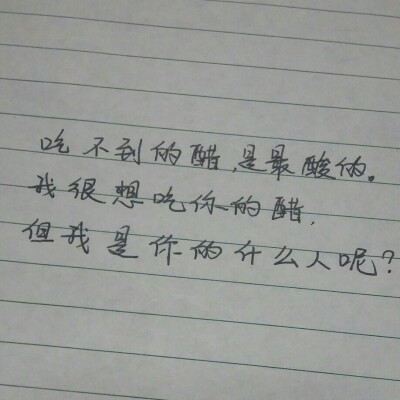 吃不到的醋,是最酸的。
我很想吃你的醋,
但我是你的什么人呢?